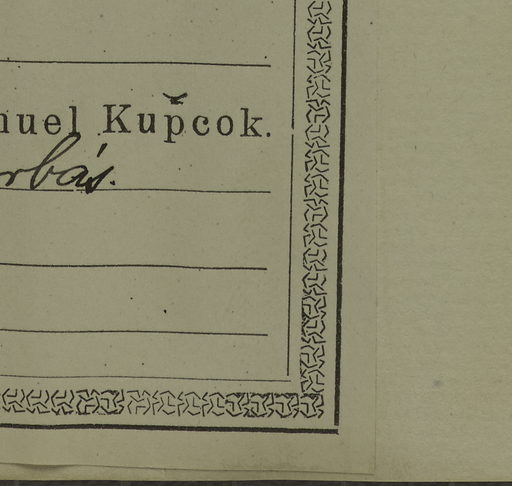 nuel Kupčok.
rbás.